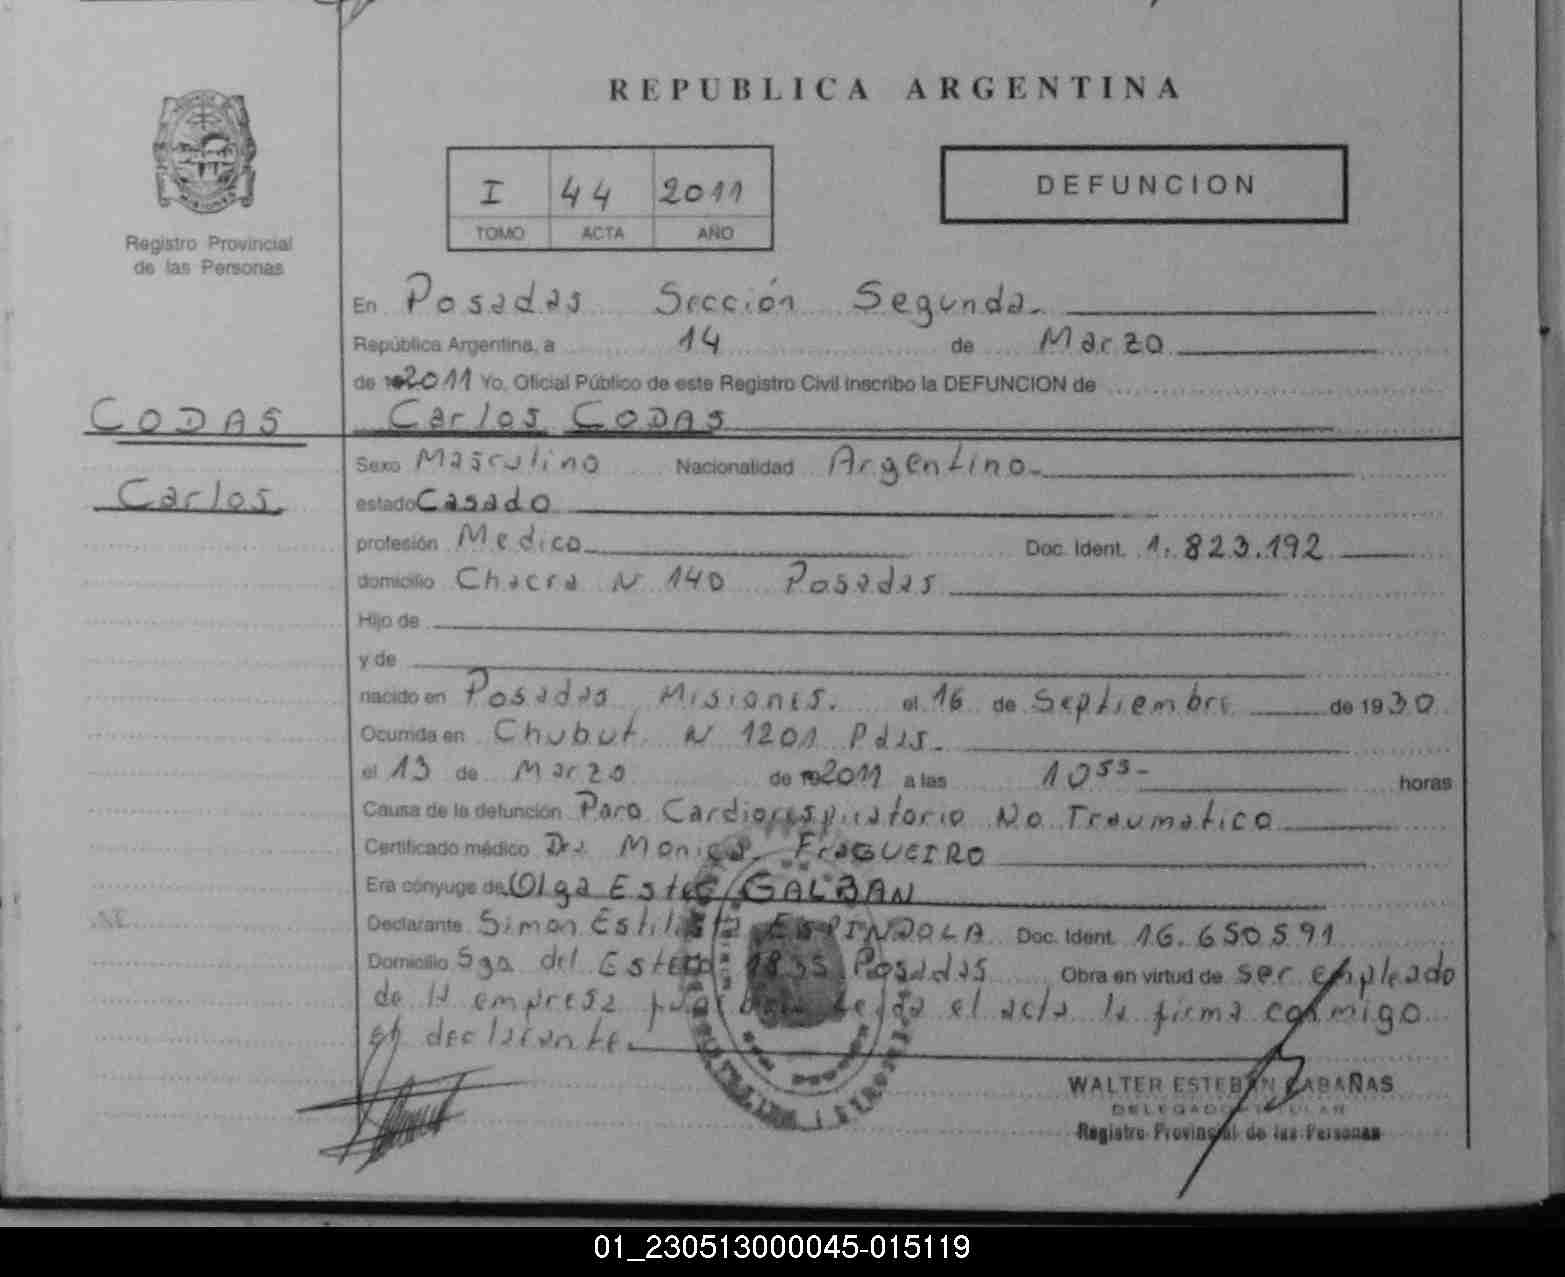 REPUBLICA ARGENTINA
Registro Provincial
de las Personas
I 44 2011
TOMO ACTA AÑO
DEFUNCION
En Posadas Sección Segunda.
República Argentina, a 14 de Marzo
de 2011 Yo, Oficial Público de este Registro Civil inscribo la DEFUNCION de
CODAS
Carlos CODAS
Carlos.
Sexo Masculino Nacionalidad Argentino
estado Casado
profesión Medico Doc. Ident. 1.823.192
domicilio Chacra N 140 Posadas
Hijo de
y de
nacido en Posadas Misiones. el 16 de Septiembre de 1930
Ocurrida en Chubut N 1201 Pdas.
el 13 de Marzo de 2011 a las 10 55 horas
Causa de la defunción Paro Cardiorespiratorio No Traumatico
Certificado médico Dra. Monica FRAGUEIRO
Era cónyuge de Olga Ester GALBAN
Declarante Simon Estil ESPINDOLA Doc. Ident. 16.650591
Domicilio Sgo del Estero 1855 Posadas Obra en virtud de ser empleado
de la empresa leida el acta la firma conmigo
el declarante.
WALTER ESTEBAN CABAÑAS
DELEGADO TITULAR
Registro Provincial de las Personas
01_230513000045-015119